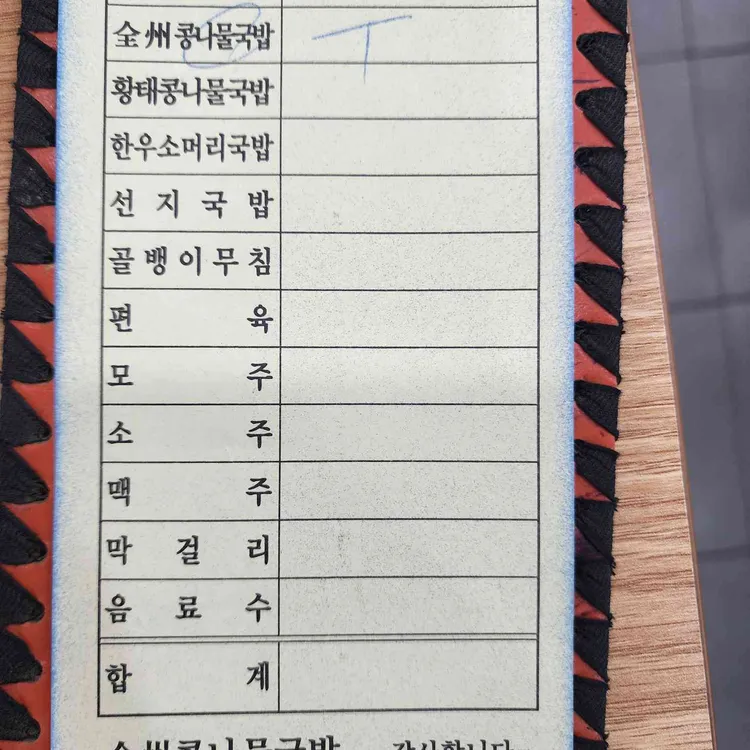 全州콩나물국밥 T
황태콩나물국밥
한우소머리국밥
선지국밥
골뱅이무침
편육
모주
소주
맥주
막걸리
음료수
합계
全州콩나물국밥 감사합니다